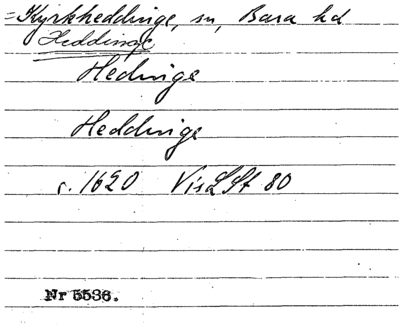 =Kyrkheddinge, sn, Bara hd
Heddinge
Hedinge
Heddinge
c. 1620 VisLSt 80
Nr 5536.